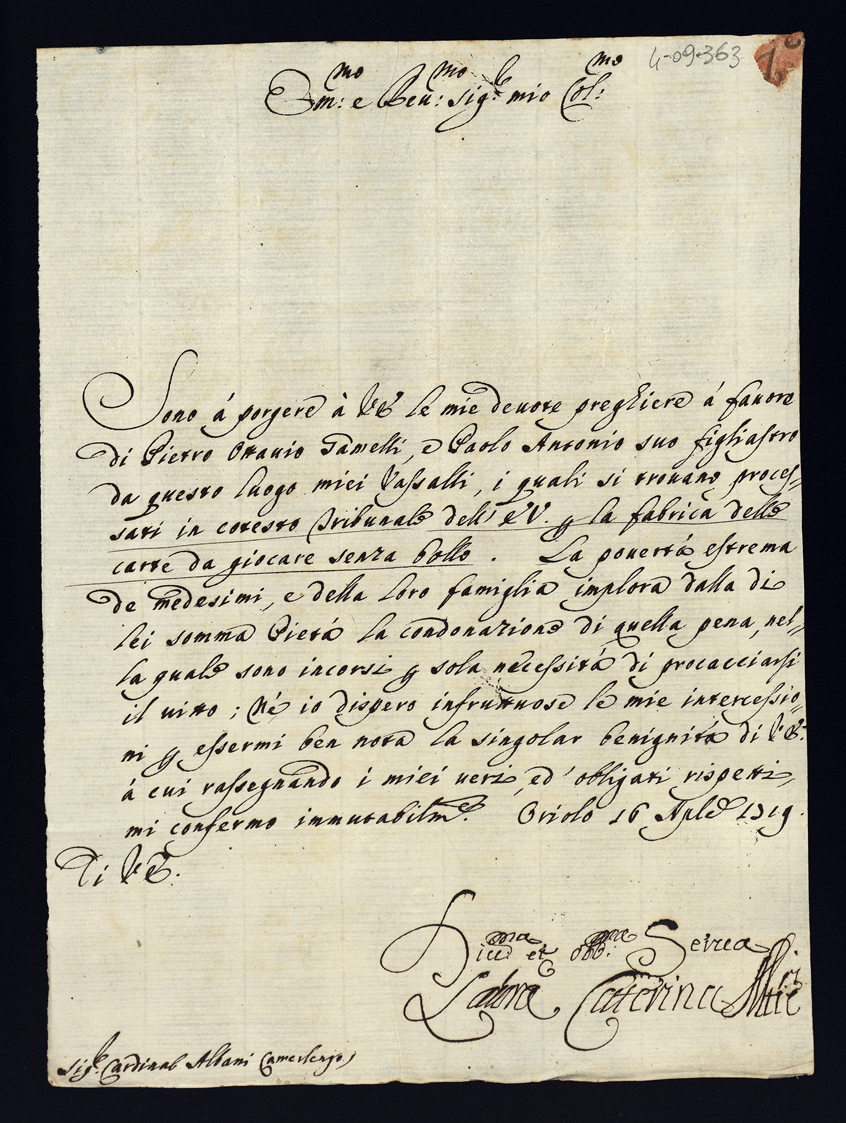 4-09-363
Em:mo e Reu:mo sig.r mio Col:mo
Sono á porgere à VE le mie deuote preghiere á fauore
di Pietro Ottauio Tamelli, e Paolo Antonio suo figliastro
da questo luogo miei Vassalli, i quali si trouano proces-
sati in cotesto Tribunale dell' EV. p la fabrica delle
carte da giocare senza bollo. La pouertá estrema
de medesimi, e della loro famiglia implora dalla di
lei somma Pietá la condonazione di quella pena, nel-
la quale sono incorsi p sola necessitá di procacciarsi
il uitto; Né io dispero infruttuose le mie intercessio-
ni p essermi ben nota la singolar benignitá di VE.
á cui rassegnando i miei ueri, ed' obligati rispetti,
mi confermo immutabilm.e Oriolo 16 Aple 1719.
Di VE.
et obb:ma Serua
Caterina
Sig.r Cardinal Albani Camerlengo